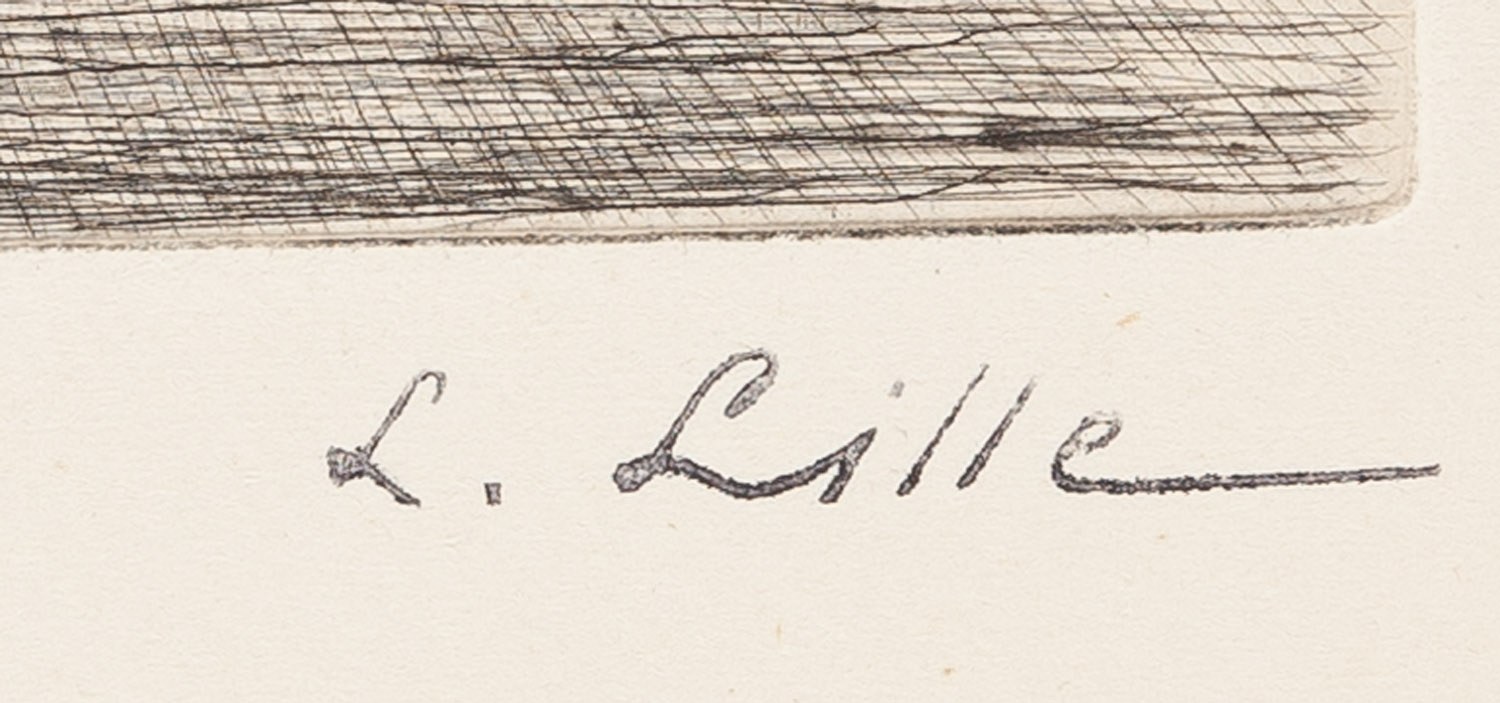 L. Lille